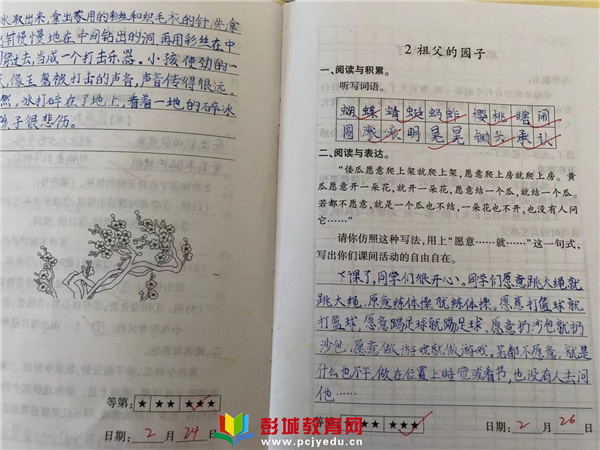 冰取出来,拿出家用的彩丝和织毛衣的针,先拿
出针慢慢地在中间钻出的洞,再用彩丝在中
穿过去,当成一个打击乐器。小孩使劲的一
像玉磬被打击的声音,声音传得很远。
然,冰打碎在了地上,看着一地的碎冰
孩子很悲伤。
等第:★ ★★ ★★★
日期:2月24日
2 祖父的园子
一、阅读与积累。
听写词语。
蝴蝶 蜻蜓 蚂蚱 樱桃 瞎闹
圆滚滚 明晃晃 锄头 承认
二、阅读与表达。
“倭瓜愿意爬上架就爬上架,愿意爬上房就爬上房。黄
瓜愿意开一朵花,就开一朵花,愿意结一个瓜,就结一个瓜。
若都不愿意,就是一个瓜也不结,一朵花也不开,也没有人问
它……”
请你仿照这种写法,用上“愿意……就……”这一句式,
写出你们课间活动的自由自在。
下课了,同学们很开心。同学们愿意跳大绳就
跳大绳,愿意练体操就练体操。愿意打篮球就
打篮球,愿意踢足球就踢足球,愿意扔沙包就扔
沙包,愿意做游戏就做游戏。若都不愿意,就是
什么也不干,做在位置上睡觉或看书,也没有人去问
他……
等 ★★ ★★★
日期:2月26日
彭城教育网
www.pcjyedu.cn